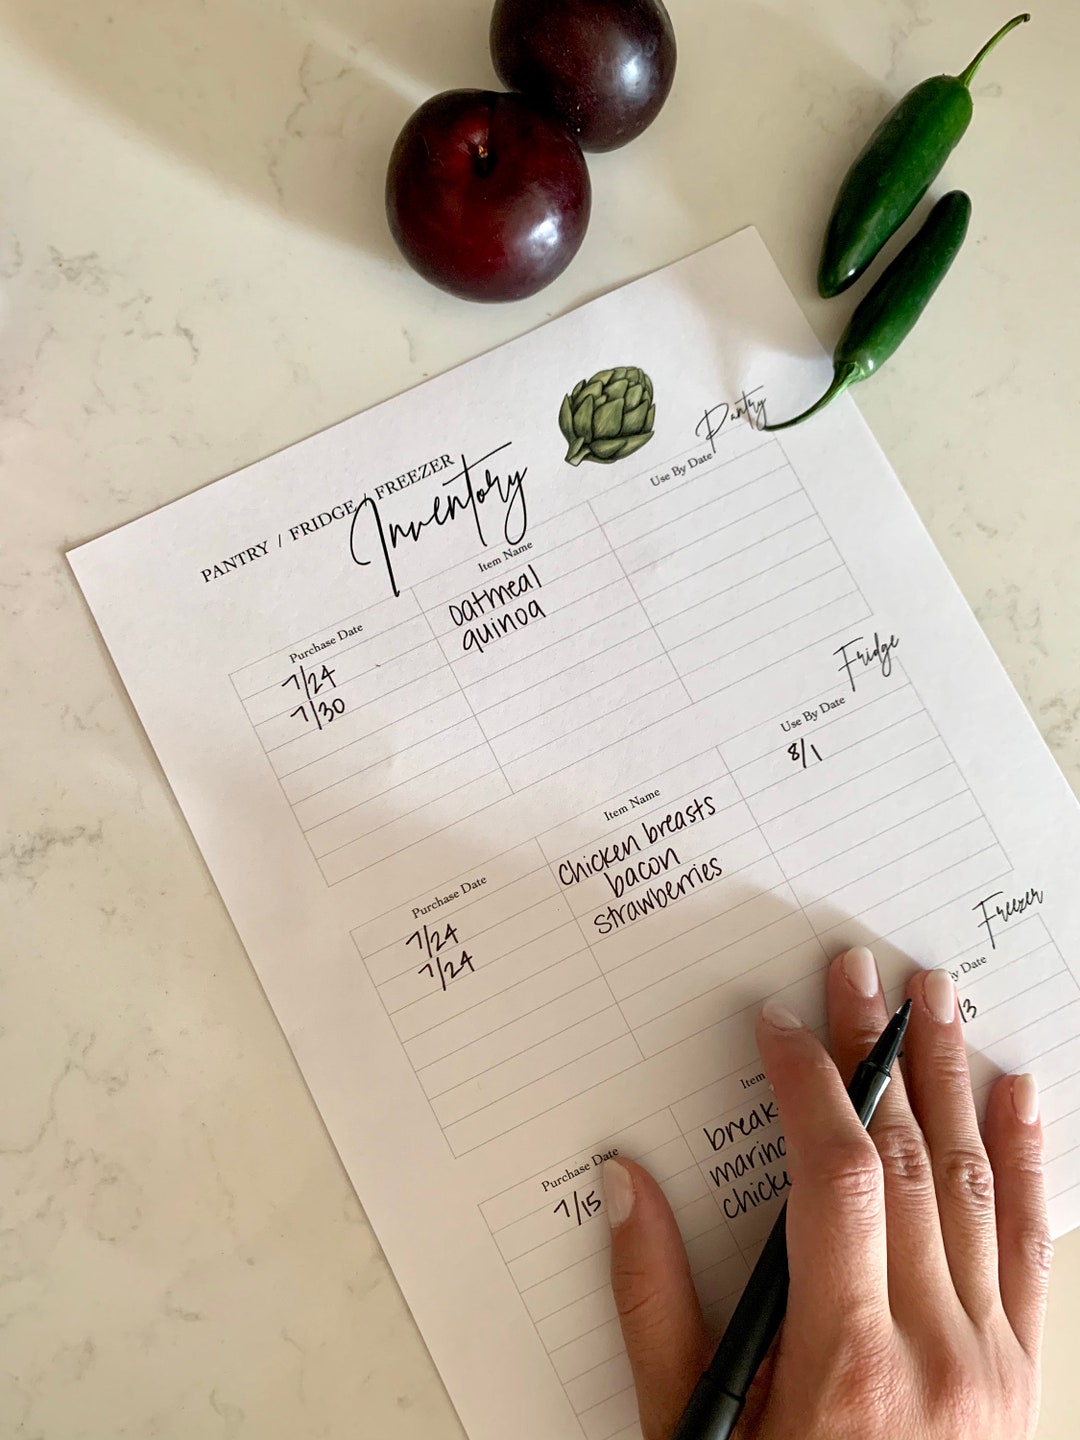 PANTRY / FRIDGE / FREEZER
Inventory
Pantry
Purchase Date Item Name Use By Date
7/24 oatmeal
7/30 quinoa
Fridge
Purchase Date Item Name Use By Date
7/24 chicken breasts 8/1
7/24 bacon
strawberries
Freezer
Purchase Date Item By Date
7/15